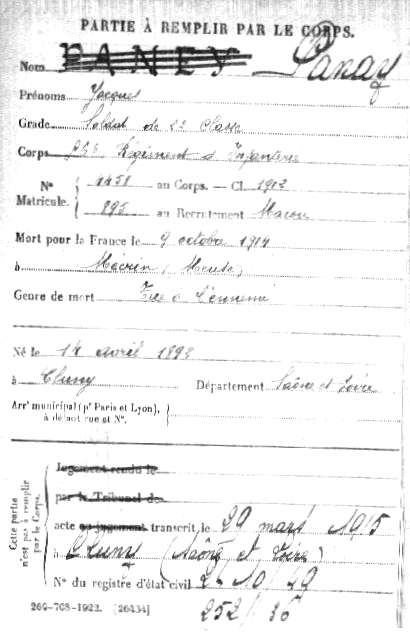 PARTIE À REMPLIR PAR LE CORPS.
Nom PANEY Panay
Prénoms Jacques
Grade Soldat de 2e Classe
Corps Régiment d'Infanterie
Nº Matricule. { 4458 au Corps. — Cl. 1913
895 au Recrutement Macon
Mort pour la France le 9 octobre 1914
à Mécrin (Meuse)
Genre de mort Tué à l'ennemi
Né le 14 avril 1893
à Cluny Département Saône et Loire
Arrᵗ municipal (pʳ Paris et Lyon), à défaut rue et Nº.
Cette partie n'est pas à remplir par le Corps.
Jugement rendu le
par le Tribunal de
acte ou jugement transcrit le 29 mars 1915
à Cluny (Saône et Loire)
Nº du registre d'état civil
260-708-1922. [26434]